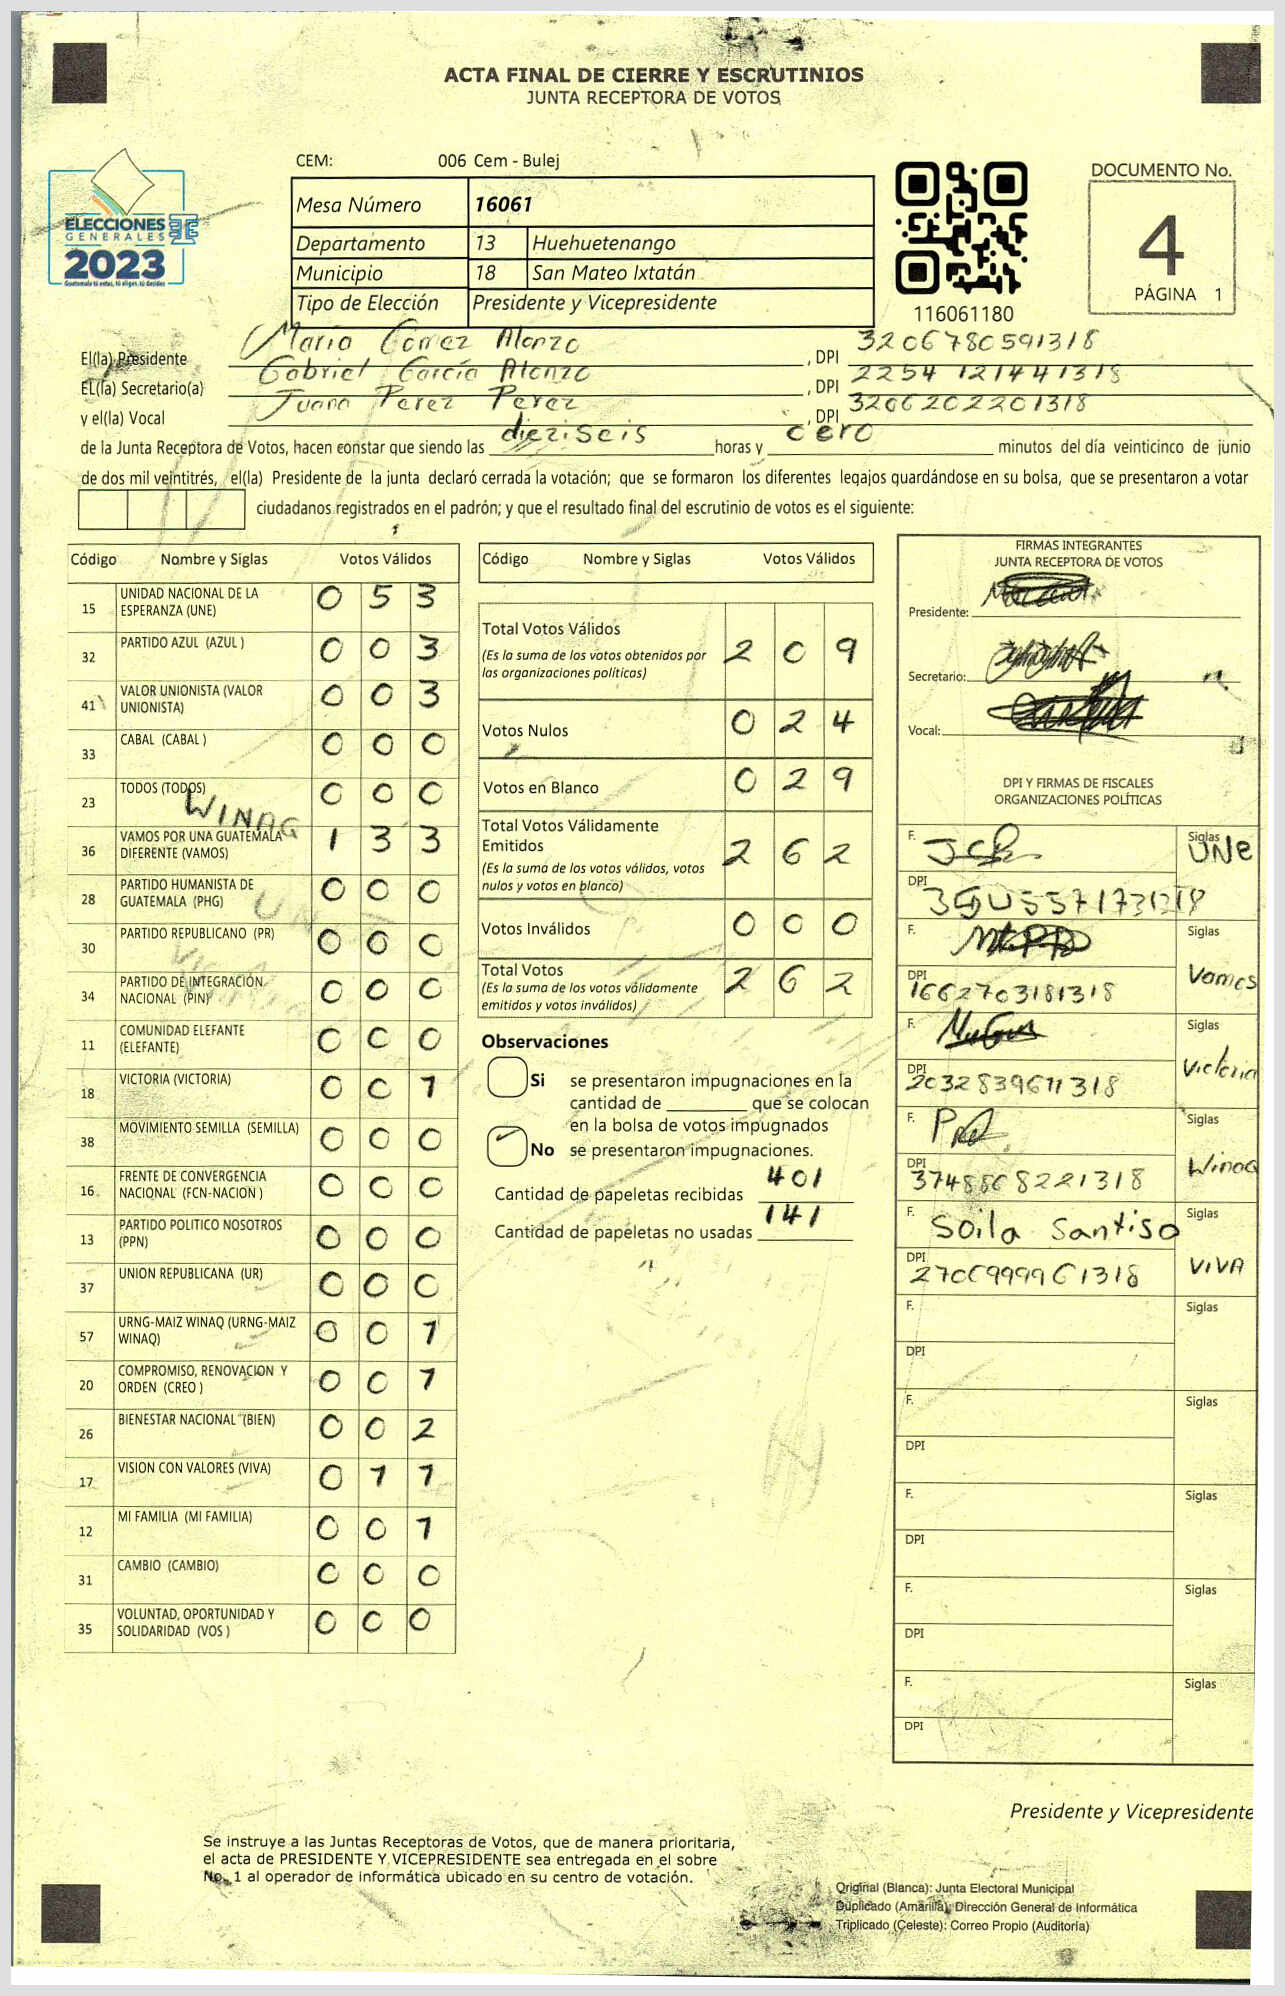 ACTA FINAL DE CIERRE Y ESCRUTINIOS
JUNTA RECEPTORA DE VOTOS
ELECCIONES
GENERALES
2023
Guatemala tú votas, tú eliges, tú decides
CEM: 006 Cem - Bulej
Mesa Número 16061
Departamento 13 Huehuetenango
Municipio 18 San Mateo Ixtatán
Tipo de Elección Presidente y Vicepresidente
116061180
DOCUMENTO No.
4
PÁGINA 1
El(la) Presidente María Gómez Alonzo , DPI 3206780591318
EL(la) Secretario(a) Gabriel García Alonzo , DPI 2254 121441318
y el(la) Vocal Juana Perez Perez , DPI 3206202201318
de la Junta Receptora de Votos, hacen constar que siendo las dieziseis horas y cero minutos del día veinticinco de junio
de dos mil veintitrés, el(la) Presidente de la junta declaró cerrada la votación; que se formaron los diferentes legajos guardándose en su bolsa, que se presentaron a votar
ciudadanos registrados en el padrón; y que el resultado final del escrutinio de votos es el siguiente:
Código Nombre y Siglas Votos Válidos
15 UNIDAD NACIONAL DE LA ESPERANZA (UNE) 0 5 3
32 PARTIDO AZUL (AZUL ) 0 0 3
41 VALOR UNIONISTA (VALOR UNIONISTA) 0 0 3
33 CABAL (CABAL ) 0 0 0
23 TODOS (TODOS) 0 0 0
WINAQ
36 VAMOS POR UNA GUATEMALA DIFERENTE (VAMOS) 1 3 3
28 PARTIDO HUMANISTA DE GUATEMALA (PHG) 0 0 0
30 PARTIDO REPUBLICANO (PR) 0 0 0
34 PARTIDO DE INTEGRACIÓN NACIONAL (PIN) 0 0 0
11 COMUNIDAD ELEFANTE (ELEFANTE) 0 0 0
18 VICTORIA (VICTORIA) 0 0 1
38 MOVIMIENTO SEMILLA (SEMILLA) 0 0 0
16 FRENTE DE CONVERGENCIA NACIONAL (FCN-NACION ) 0 0 0
13 PARTIDO POLITICO NOSOTROS (PPN) 0 0 0
37 UNION REPUBLICANA (UR) 0 0 0
57 URNG-MAIZ WINAQ (URNG-MAIZ WINAQ) 0 0 1
20 COMPROMISO, RENOVACION Y ORDEN (CREO ) 0 0 1
26 BIENESTAR NACIONAL (BIEN) 0 0 2
17 VISION CON VALORES (VIVA) 0 1 1
12 MI FAMILIA (MI FAMILIA) 0 0 1
31 CAMBIO (CAMBIO) 0 0 0
35 VOLUNTAD, OPORTUNIDAD Y SOLIDARIDAD (VOS ) 0 0 0
Código Nombre y Siglas Votos Válidos
Total Votos Válidos 2 0 9
(Es la suma de los votos obtenidos por
las organizaciones políticas)
Votos Nulos 0 2 4
Votos en Blanco 0 2 9
Total Votos Válidamente
Emitidos 2 6 2
(Es la suma de los votos válidos, votos
nulos y votos en blanco)
Votos Inválidos 0 0 0
Total Votos 2 6 2
(Es la suma de los votos válidamente
emitidos y votos inválidos)
Observaciones
Si se presentaron impugnaciones en la
cantidad de que se colocan
en la bolsa de votos impugnados
No se presentaron impugnaciones.
Cantidad de papeletas recibidas 401
Cantidad de papeletas no usadas 141
FIRMAS INTEGRANTES
JUNTA RECEPTORA DE VOTOS
Presidente:
Secretario:
Vocal:
DPI Y FIRMAS DE FISCALES
ORGANIZACIONES POLÍTICAS
F. Siglas UNe
DPI
F. Siglas Vamos
DPI 1662703181318
F. Siglas Victoria
DPI 2032839611318
F. Siglas Winaq
DPI 3748868221318
F. Soila Santiso Siglas VIVA
DPI 2706999961318
F. Siglas
DPI
F. Siglas
DPI
F. Siglas
DPI
F. Siglas
DPI
F. Siglas
DPI
Presidente y Vicepresidente
Se instruye a las Juntas Receptoras de Votos, que de manera prioritaria,
el acta de PRESIDENTE Y VICEPRESIDENTE sea entregada en el sobre
No. 1 al operador de informática ubicado en su centro de votación.
Original (Blanca): Junta Electoral Municipal
Duplicado (Amarilla): Dirección General de Informática
Triplicado (Celeste): Correo Propio (Auditoría)